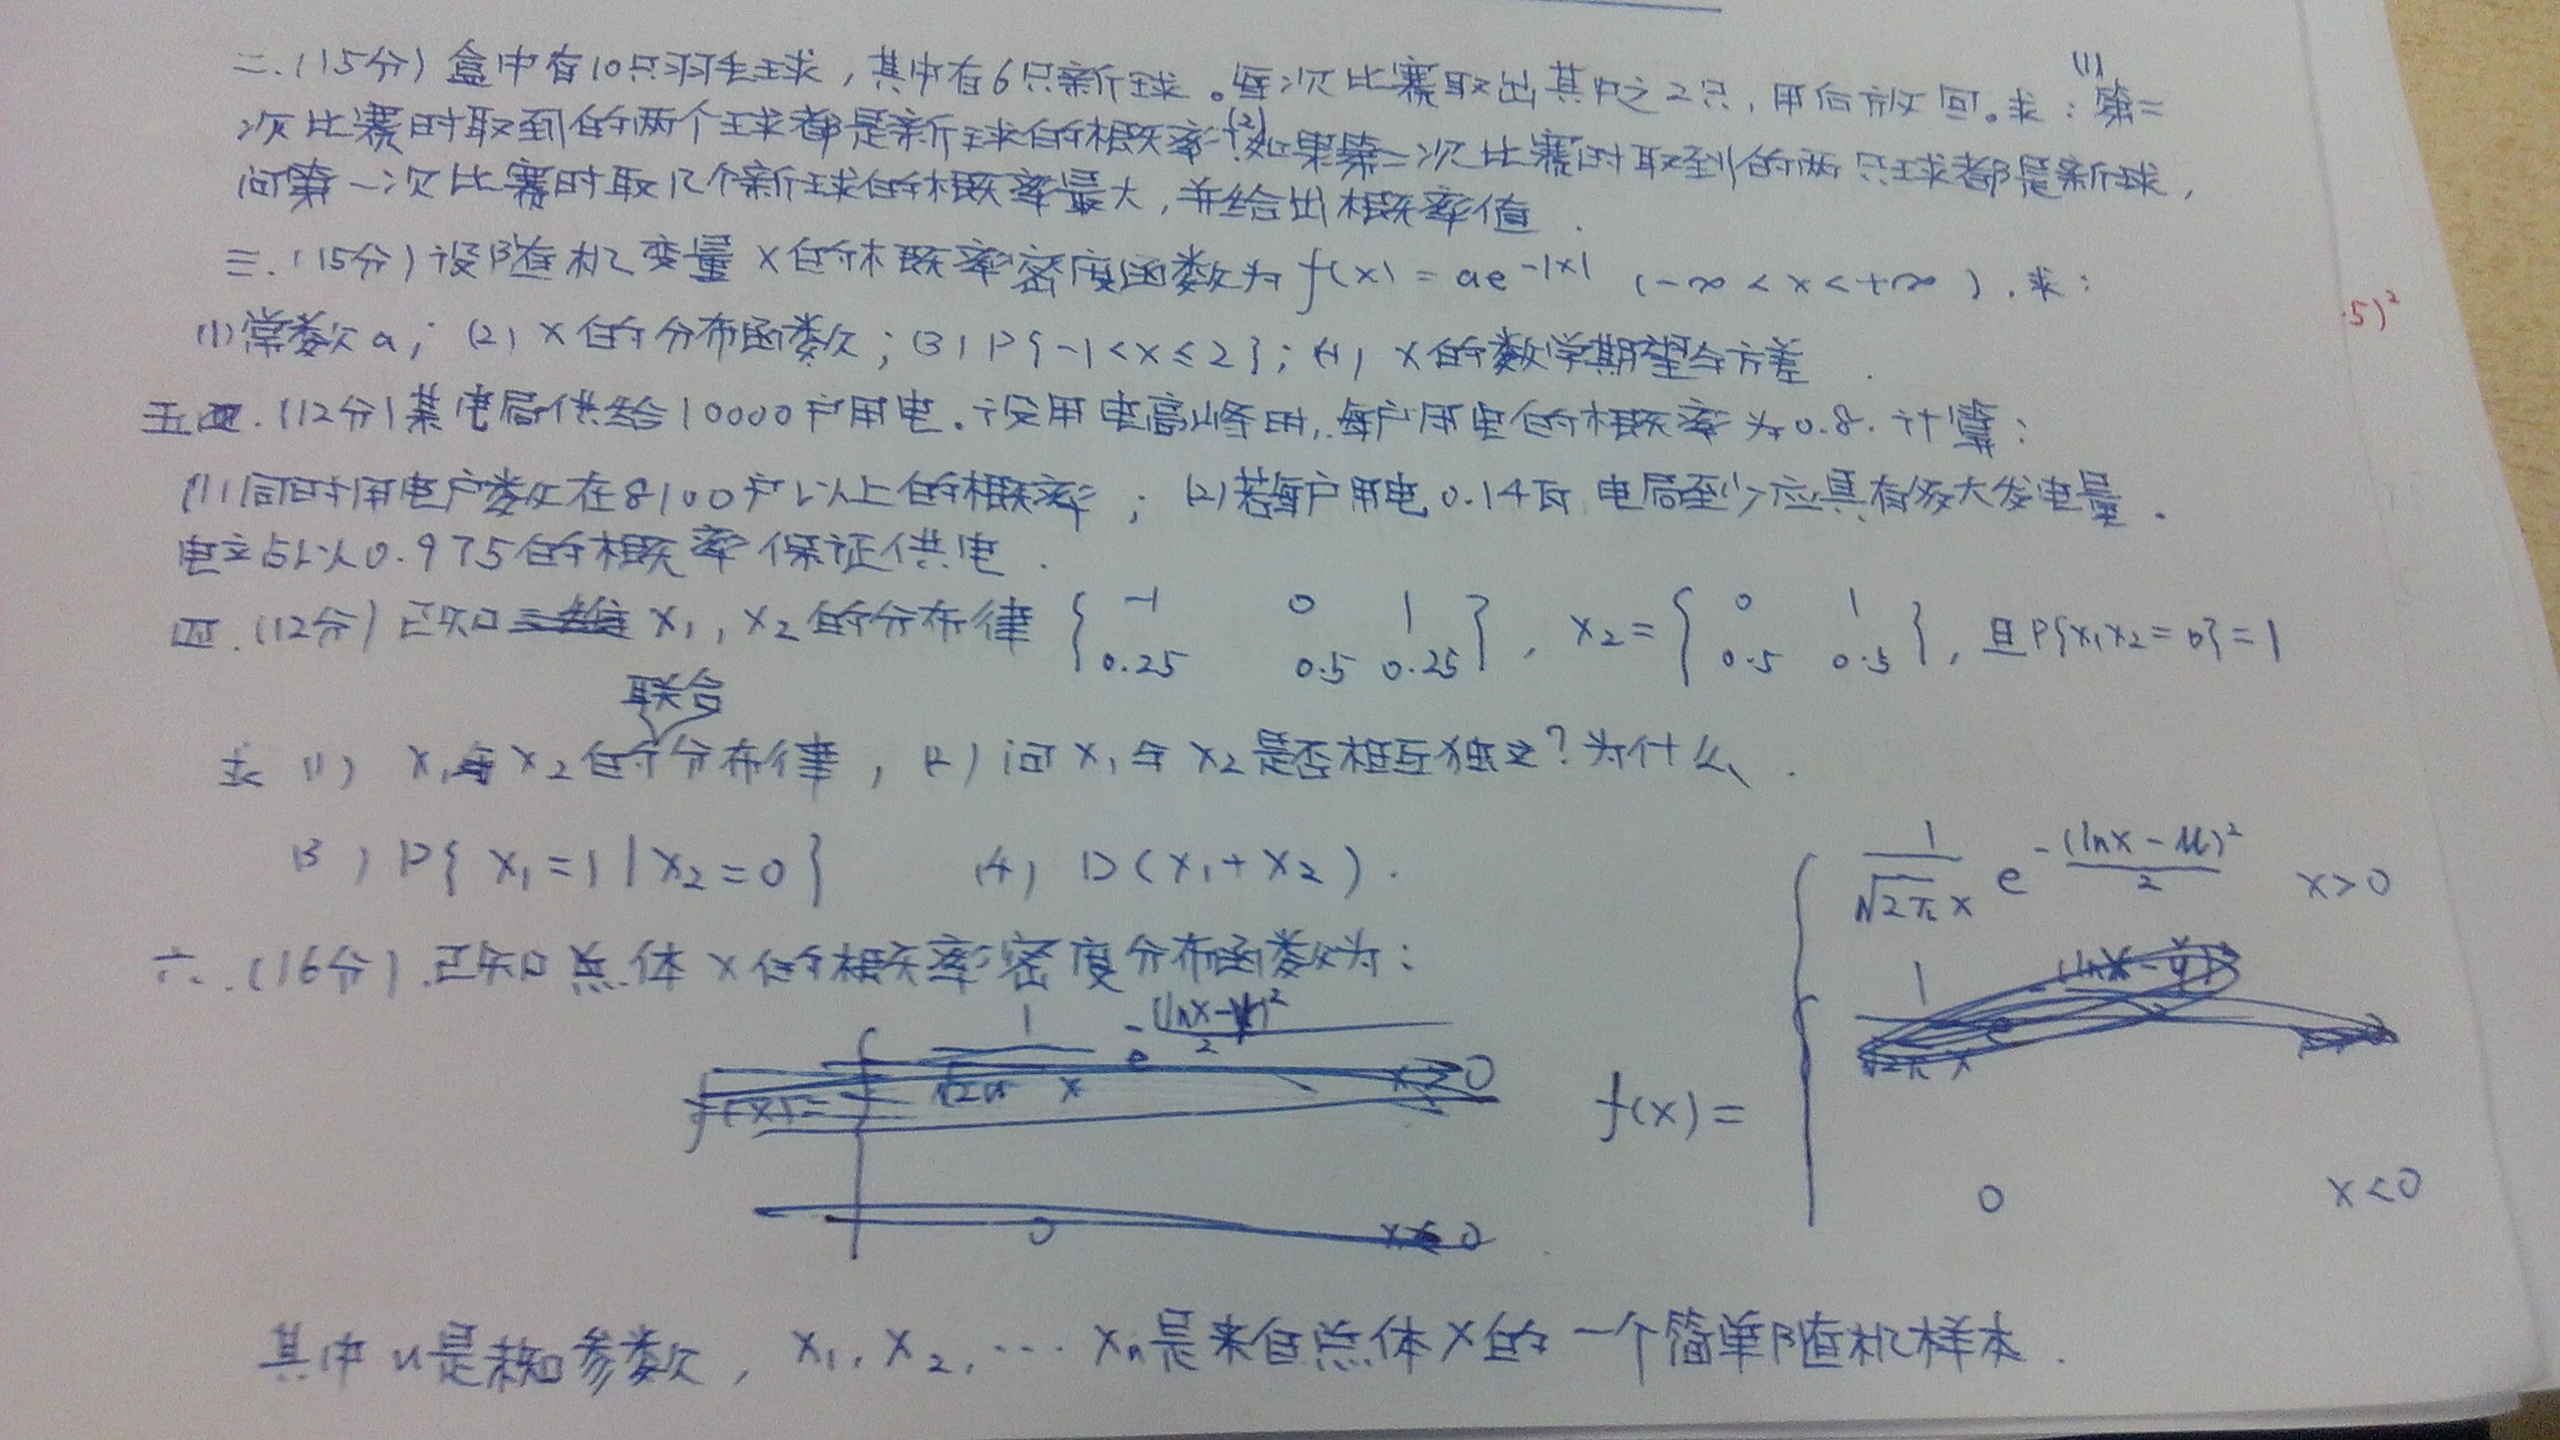 二.(15分)盒中有10只羽毛球,其中有6只新球。每次比赛取出其中之2只,用后放回。求:(1)第二
次比赛时取到的两个球都是新球的概率?(2)如果第二次比赛时取到的两只球都是新球,
问第一次比赛时取几个新球的概率最大,并给出概率值.
三.(15分)设随机变量X的概率密度函数为f(x)=ae^{-|x|} (-∞<x<+∞).求:
(1)常数a;(2)X的分布函数;(3)P{-1<x≤2};(4)X的数学期望与方差.
五.(12分)某电局供给10000户用电.设用电高峰时,每户用电的概率为0.8.计算:
(1)同时用电户数在8100户以上的概率;(2)若每户用电0.1千瓦,电局至少应具有多大发电量.
电立占以0.975的概率保证供电.
四.(12分)已知X₁,X₂的分布律{-1 0 1 0.25 0.5 0.25},X₂={0 1 0.5 0.5},且P{X₁X₂=0}=1
求(1)X₁与X₂的联合分布律,(2)问X₁与X₂是否相互独立?为什么.
(3)P{X₁=1|X₂=0} (4)D(X₁+X₂).
六.(16分).已知总体X的概率密度分布函数为:
f(x)={ 1/(√2π x) e^{-(lnx-μ)²/2} x>0
0 x<0
其中u是未知参数,X₁,X₂,…Xn是来自总体X的一个简单随机样本.
·5)²